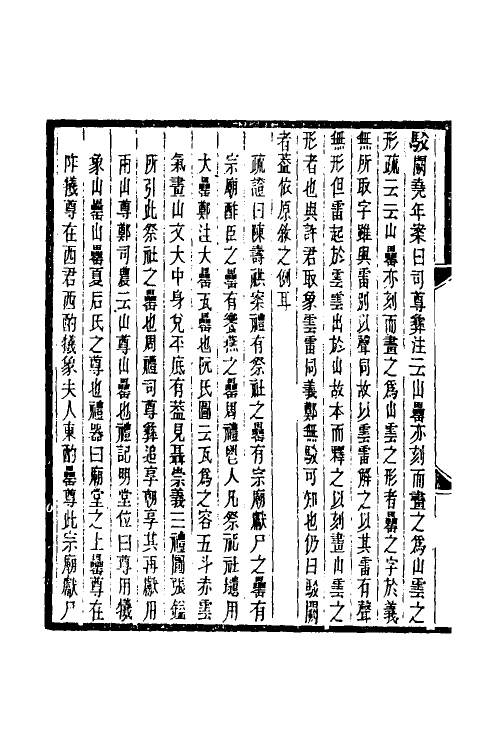 駁闕堯年案曰司尊彝注云山罍亦刻而畫之為山雲之
形疏云云山罍亦刻而畫之為山雲之形者罍之字於義
無所取字雖與雷別以聲同故以雲雷解之以其雷有聲
無形但雷起於雲雲出於山故本而釋之以刻畫山雲之
形者也與許君取象雲雷同義鄭無駁可知也仍曰駁闕
者葢依原敘之例耳
疏證曰陳壽祺案禮有祭社之罍有宗廟獻尸之罍有
宗廟酢臣之罍有饗燕之罍周禮鬯人凡祭祀社壝用
大罍鄭注大罍瓦罍也阮氏圖云瓦為之容五斗赤雲
氣畫山文大中身兌平底有葢見聶崇義三禮圖張鎰
所引此祭社之罍也周禮司尊彝追享朝享其再獻用
兩山尊鄭司農云山尊山罍也禮記明堂位曰尊用犧
象山罍山罍夏后氏之尊也禮器曰廟堂之上罍尊在
阼犧尊在西君西酌犧象夫人東酌罍尊此宗廟獻尸